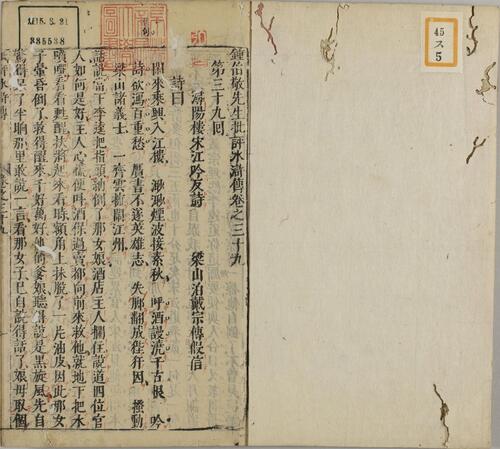 45
ス
5
鍾伯敬先生批評水滸傳卷之三十九
第三十九回
潯陽樓宋江吟反詩　梁山泊戴宗傳假信
詩曰
閒來乘興入江樓　渺渺煙波接素秋　呼酒謾澆千古恨　吟
詩欲瀉百重愁　贋書不遂英雄志　失脚翻成狴犴囚　搔動
梁山諸義士　一齊雲擁鬧江州
話說當下李逵把指頭捺倒了那女娘酒店主人攔住說道四位官
人如何是好主人心慌便呌酒保過賣都向前來救他就地下把水
噴噀看看甦醒扶將起來看時額角上抹脫了一片油皮因此那女
子暈昏倒了救得醒來千好萬好他的爹娘聽得說是黑旋風先自
驚得呆了半晌那里敢說一言看那女子已自說得話了娘母取個
卷之三十九